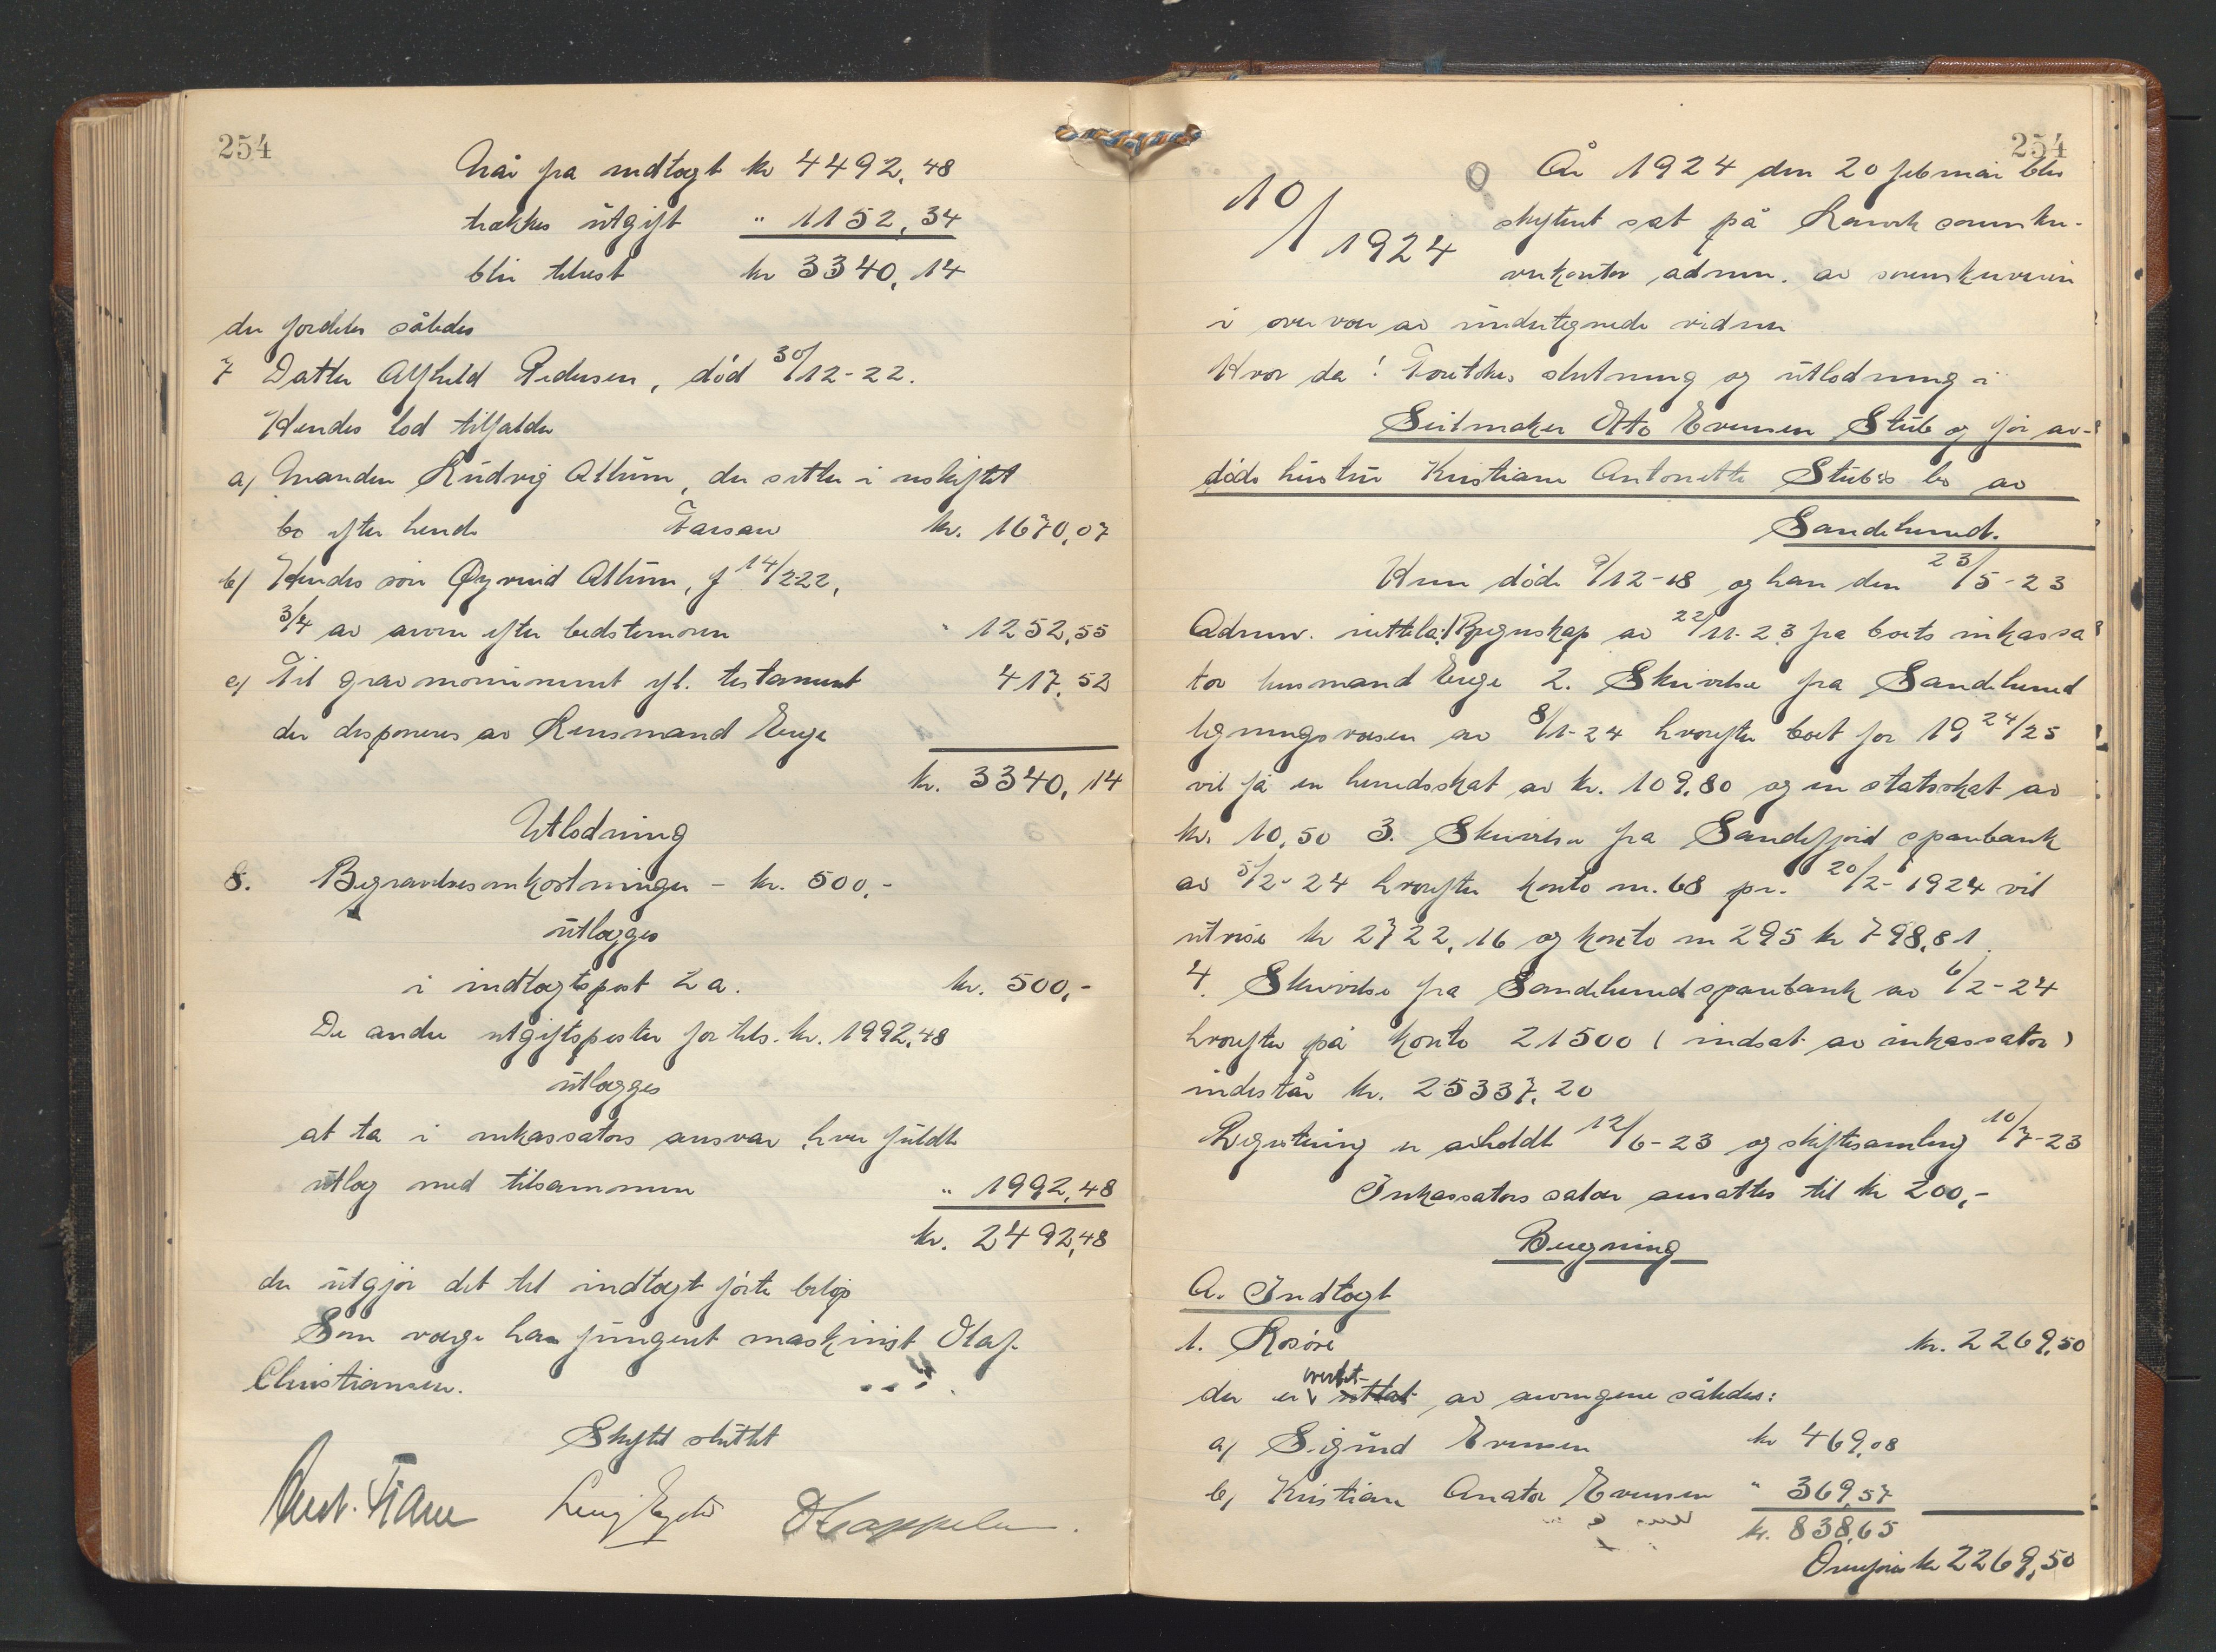 254
Når fra indtægt kr 4492,48
trækkes utgift " 1152,34
blir tilrest kr 3340,14
der fordeles således
7 Datter Alfhild Pedersen, død 30/12-22.
Hendes lod tilfalder
a/ Manden Ludvig Allum, der sitter i uskiftet
bo efter hende Farsarv kr. 1670,07
b/ Hendes søn Øyvind Allum, f 14/2 22,
3/4 av arven efter bedstemoren " 1252,55
c/ Til gravmonument ifl. testament 417,52
der disponeres av Lensmand Enge
kr. 3340,14
Utlodning
8. Begravelsesomkostninger - kr. 500,-
utlægges
i indtægtspost 2 a. kr. 500,-
De andre utgiftsposter for tils. kr. 1992,48
utlægges
at ta i inkassators ansvar hver fuldt
utlæg med tilsammen " 1992,48
kr. 2492,48
der utgjør det til indtægt førte beløp
Som værge har fungert maskinist Olaf
Christiansen.
Skiftet sluttet
254
10/1924
År 1924 den 20 februar blev
skifteret sat på Larvik sorenskri-
verkontor admin. av sorenskriveren
i overvær av undertegnede vidner
Hvor da! Foretokes slutning og utlodning i
Seilmaker Otto Evensen Stub og før av-
døde hustru Kristiane Antonette Stub's bo av
Sandeherred.
Hun døde 9/12-18 og han den 23/5-23
Admin. irettela: 1 Regnskap av 22/11-23 fra boets inkassa
tor lensmand Enge 2. Skrivelse fra Sandeherred
ligningsvæsen av 8/1-24 hvorefter boet for 19 24/25
vil få en herredsskat av kr. 109,80 og en statsskat av
kr. 10,50 3. Skrivelse fra Sandefjord sparebank
av 5/2-24 hvorefter konto nr. 68 pr. 20/2-1924 vil
utvise kr 2722,16 og konto nr 295 kr 798,81
4. Skrivelse fra Sandeherred sparebank av 6/2-24
hvorefter på konto 21500 (indsat av inkassator)
indestår kr. 25337,20
Registrering er avholdt 12/6-23 og skiftesamling 10/7-23
Inkassators salær ansattes til kr 200,-
Beregning
A. Indtægt
1. Løsøre kr. 2269,50
der er overtat av arvingene således:
a/ Sigurd Evensen kr 469,08
b/ Kristian Anator Evensen " 369,57
kr. 838,65
Overføres kr 2269,50